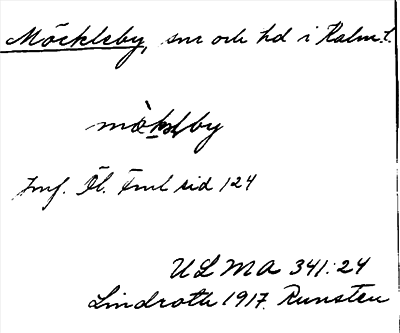 Möckleby, snr och hd i Kalm. l.
Jmf. Öl. Fml sid 124
ULMA 341:24
Lindroth 1917. Runsten